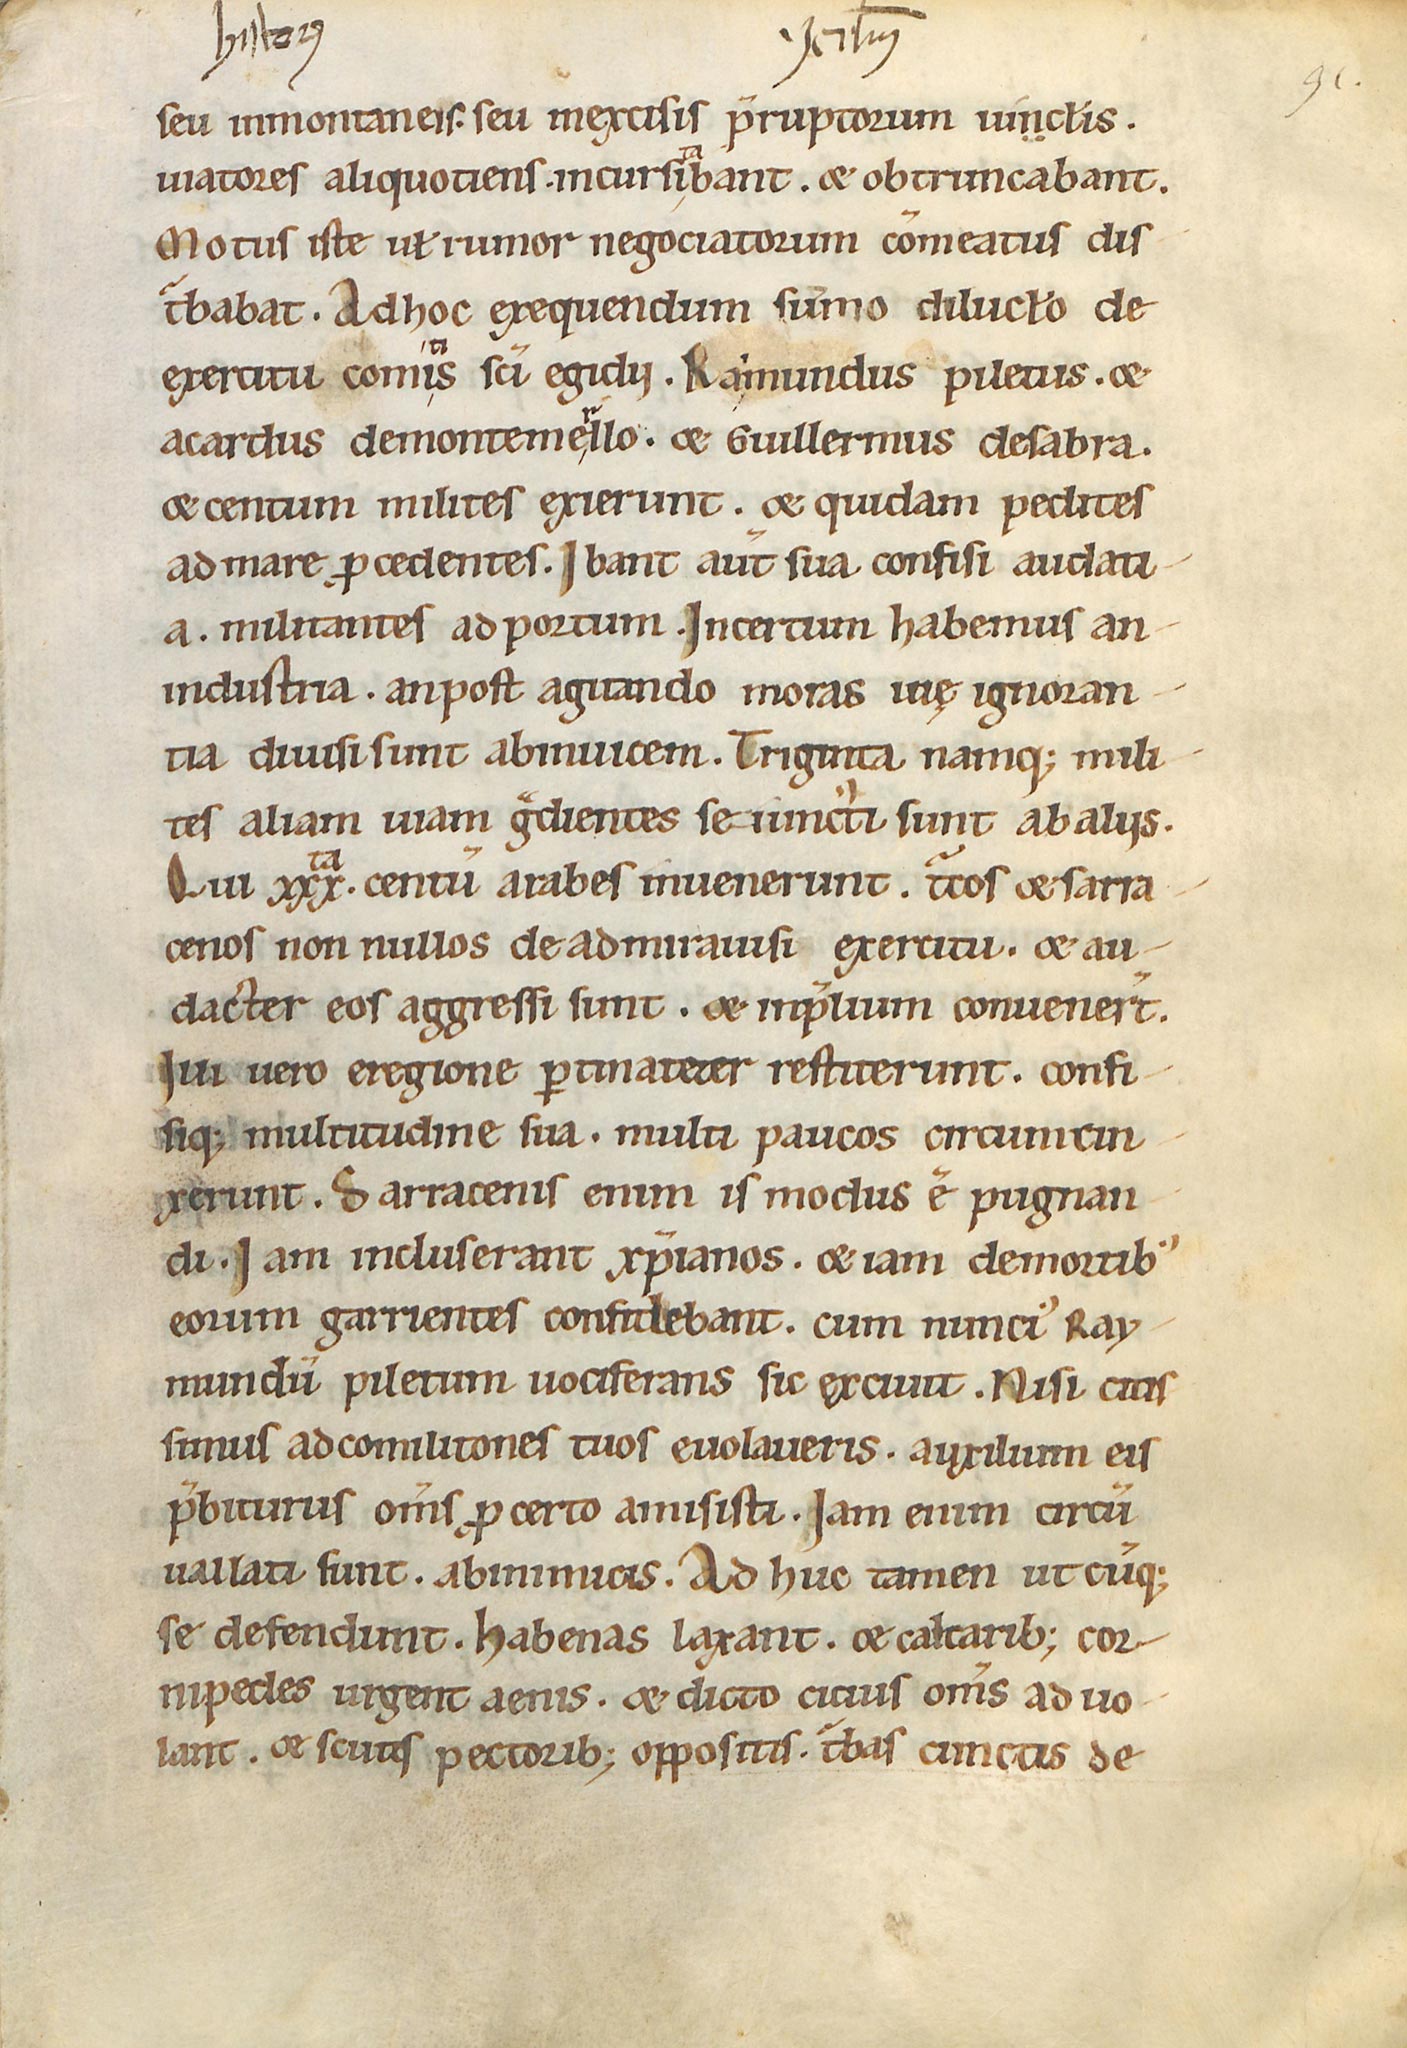 histor₉ Jerłm̄
91.
seu inmontaneis. seu inexcisis p̄ruptorum uiṇc̣tis.
uiatores aliquotiens. incursịtabant. & obtruncabant.
Motus iste uł rumor negociatorum com̄eatus dis-
t̄babat. Adhoc exequendum sum̄o diluc̓lo de
exercitu comịtis sc̄i egidij. Raimundus piletus. &
acardus demontemeṛllo. & Guillermus desabra.
& centum milites exierunt. & quidam pedites
ad mare ꝓcedentes. Ibant aut̄ sua confisi audati-
a. militantes ad portum. Incertum habemus an-
industria. anpost agitando moras uię ignoran-
tia diuisi sunt abinuicem. Triginta namq; mili-
tes aliam uiam gͣdientes se iuncti sunt ab alijs.
Qui xxxta. centū arabes inuenerunt. t̄cos & sarra-
cenos non nullos de admirauisi exercitu. & au-
dacter eos aggressi sunt. & inp̄lium conuener̄t.
Illi uero eregione ꝑtinaciter restiterunt. confi-
siq; multitudine sua. multi paucos circumcin-
xerunt. Sarracenis enim is modus ē pugnan-
di. Iam incluserant xp̄ianos. & iam demortibꝰ
eorum garrientes confidebant. cum nunciꝰ Ray-
mundū piletum uociferans sic exciuit. Nisi citis
simus ad comilitones tuos euolaueris. auxilium eis
p̄biturus om̄s ꝓ certo amisisti. Iam enim circū
uallati sunt. abinimicis. Ad huc tamen ut cūq;
se defendunt. habenas laxant. & calcarib; cor-
nipedes urgent aenis. & dicto citius om̄s ad uo-
lant. & scutis pectorib; oppositis. t̄bas cunctis de